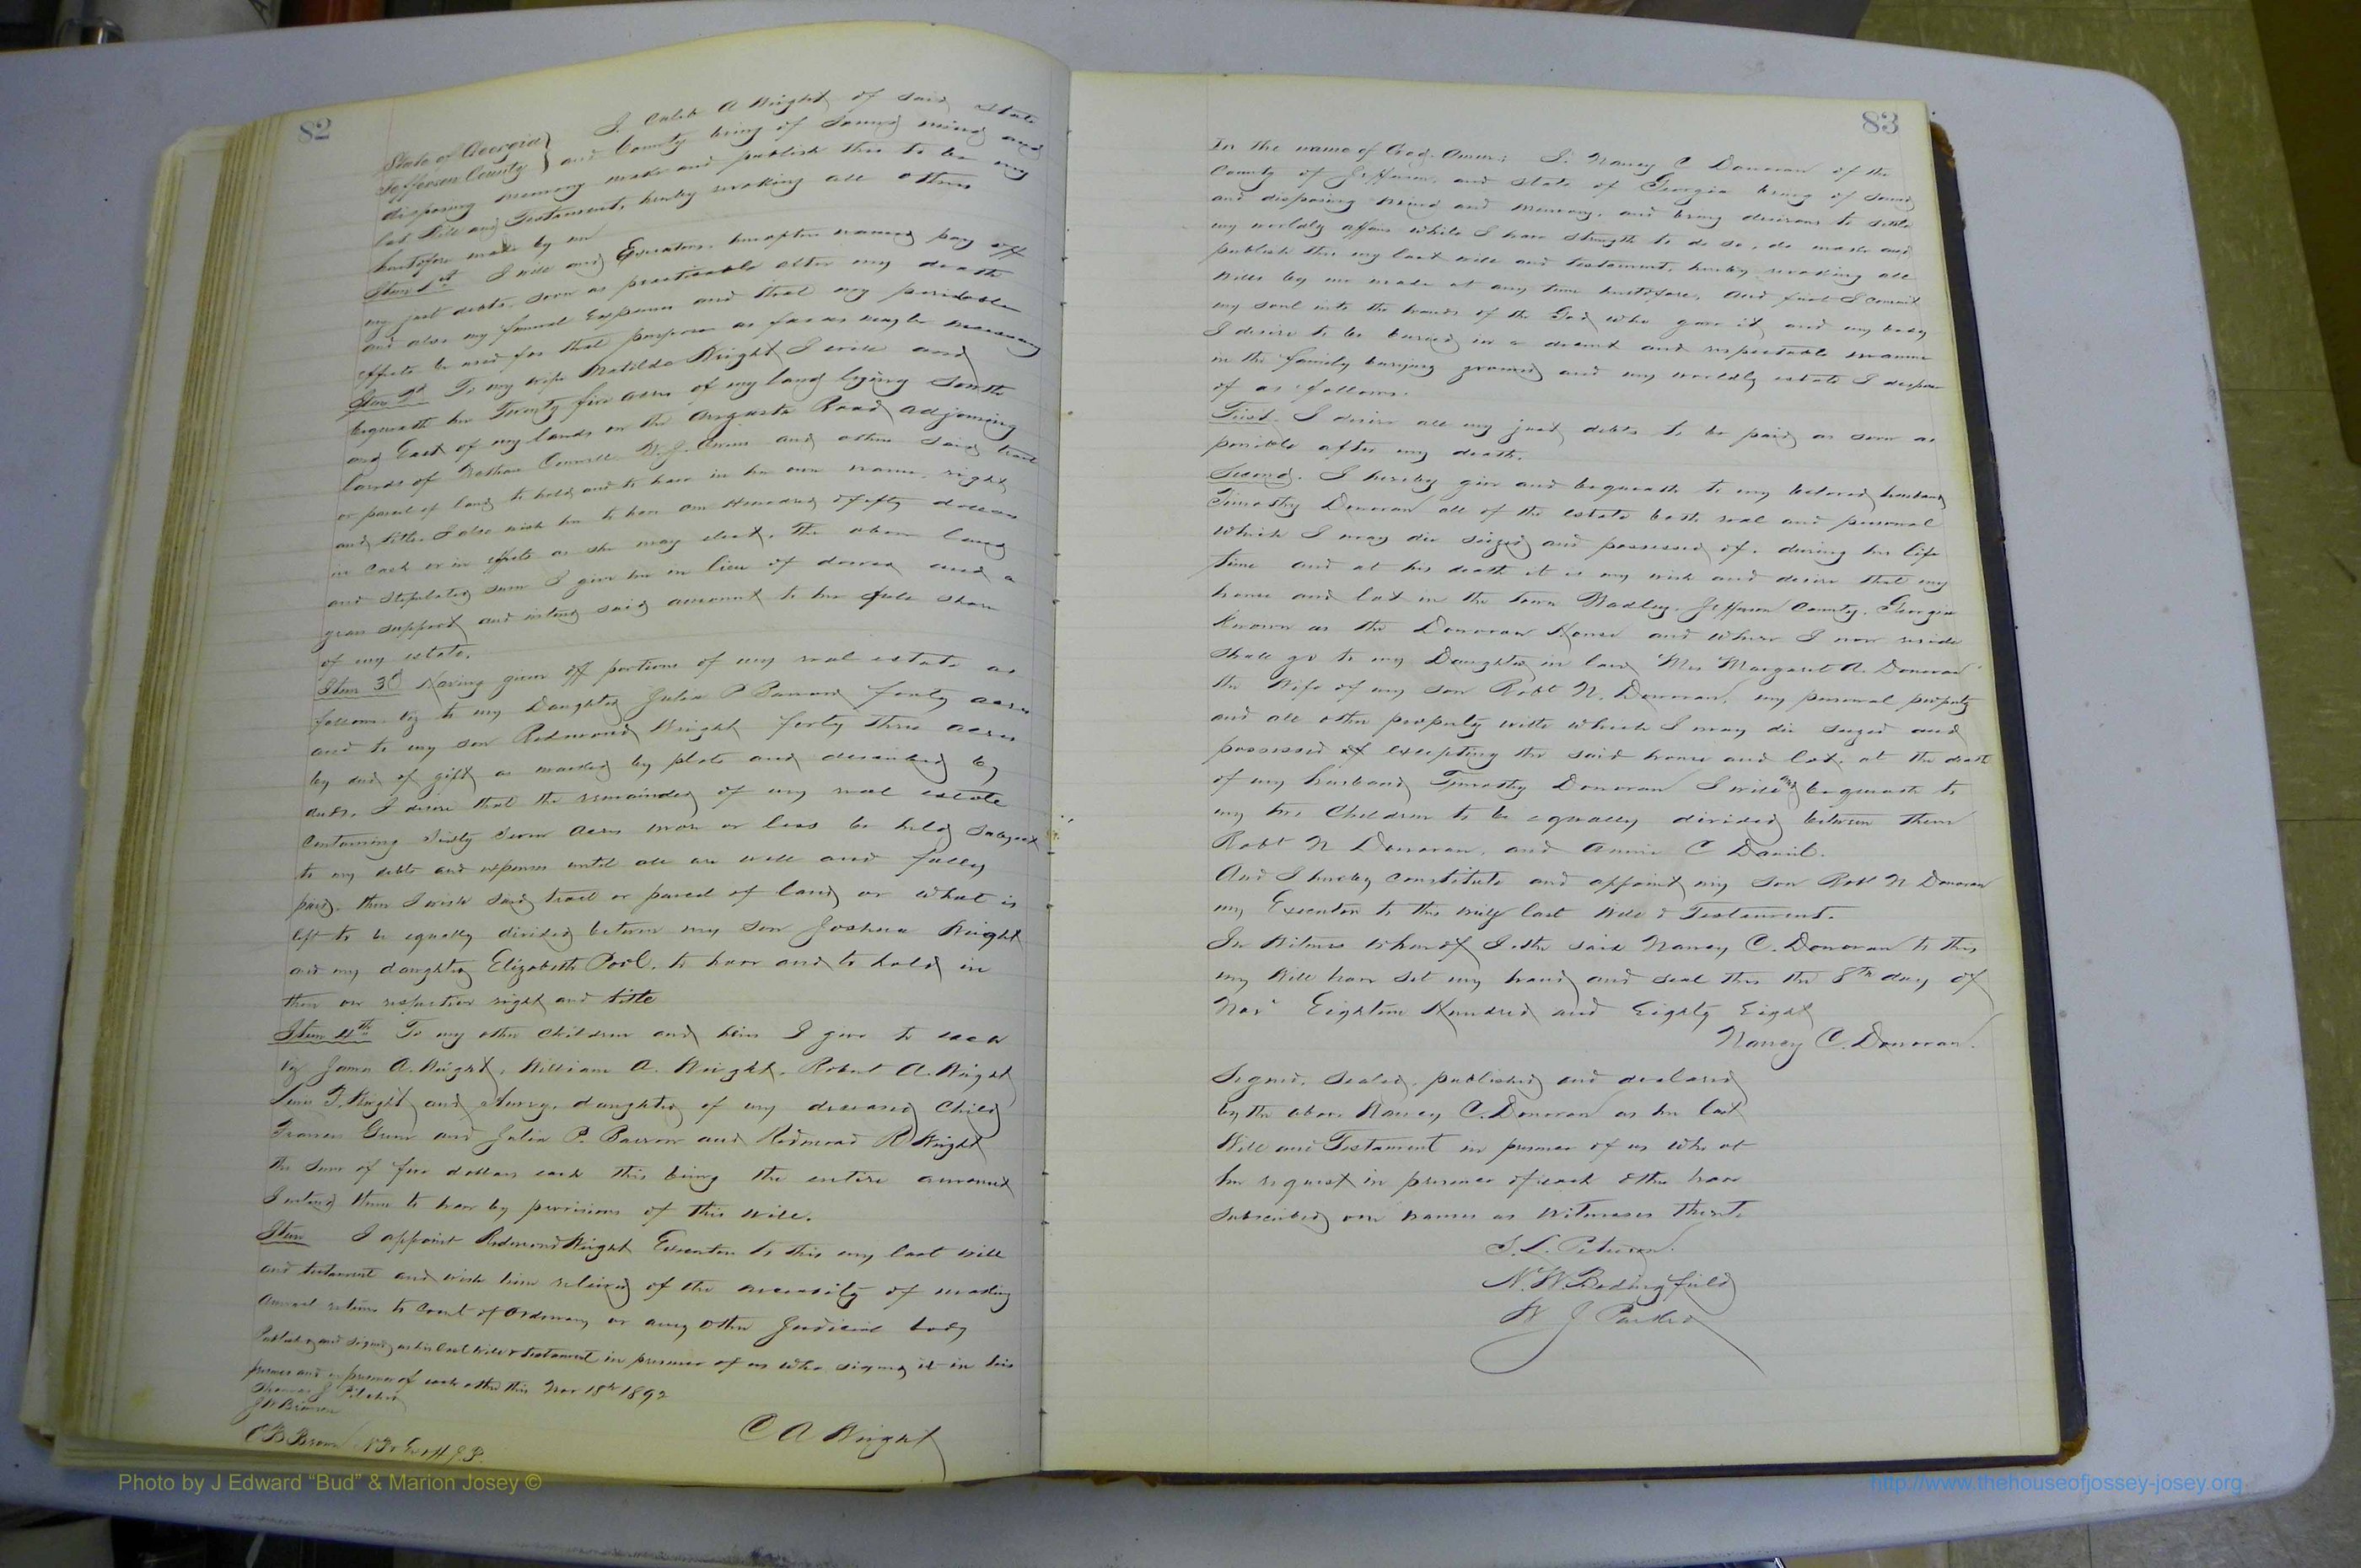 82
I. Caleb A Wright of said State
State of Georgia }
Jefferson County } and County being of sound mind and
disposing memory make and publish this to be my
last Will and Testament, hereby revoking all others
heretofore made by me
Item 1st I will and Executors hereafter named pay off
my just debts, soon as practicable after my death
and also my funeral Expenses and that my perishable
effects be used for that purpose as far as may be necessary
Item 2d To my wife Matilda Wright I will and
bequeath her Twenty five acres of my land lying South
and East of my lands on the Augusta Road adjoining
lands of Nathan W. J. and others said tract
or parcel of land to hold and to have in her own name, right
and title I also wish her to have one Hundred & fifty dollars
in cash or in effects as she may elect, The above land
and stipulated sum I give her in lieu of dower and a
years support and intend said amount to her full share
of my estate.
Item 3d Having given off portions of my real estate as
follows viz to my Daughter Julia P Barrow forty acres
and to my son Redmond Wright forty three acres
by deed of gift as marked by plats and described by
deeds, I desire that the remainder of my real estate
containing Sixty Seven acres more or less be held subject
to my debts and expenses until all are well and fully
paid. then I wish said tract or parcel of land or what is
left to be equally divided between my son Joshua Wright
and my daughter Elizabeth Pool. to have and to hold in
their own respective right and title
Item 4th To my other children and heirs I give to each
viz James A. Wright, William A. Wright. Robert A. Wright
T. Wright and daughter of my deceased child
Frances and Julia P. Barrow and Redmond R Wright
the sum of five dollars each this being the entire amount
I intend them to have by provisions of this will.
Item I appoint Redmond Wright Executor to this my last will
and testament and wish him relieved of the necessity of making
annual returns to Court of Ordinary or any other Judicial body
Published and signed as his last will & testament in presence of us who signed it in his
presence and in presence of each other this Nov 18th 1892
Thomas J Pilcher
J W Brinson
C B Brown J.P.
C A Wright
83
In the name of God. Amen; I. Nancy C Donovan of the
County of Jefferson, and State of Georgia being of sound
and disposing mind and memory, and being desirous to settle
my worldly affairs while I have strength to do so, do make and
publish this my last will and testament, hereby revoking all
wills by me made at any time heretofore, And first I commit
my soul into the hands of the God who gave it, and my body
I desire to be buried in a decent and respectable manner
in the family burying ground and my worldly estate I dispose
of as follows.
First. I desire all my just debts to be paid as soon as
possible after my death.
Second. I hereby give and bequeath to my beloved husband
Timothy Donovan all of the estate both real and personal
which I may die seized and possessed of, during his life
time and at his death it is my wish and desire that my
house and lot in the town Wadley. Jefferson County, Georgia
known as the Donovan House and where I now reside
shall go to my Daughter in law Mrs Margaret A. Donovan
the wife of my son Robt N. Donovan, my personal property
and all other property with which I may die seized and
possessed of excepting the said house and lot, at the death
of my husband Timothy Donovan I will and bequeath to
my two Children to be equally divided between them
Robt N Donovan, and Annie C Daniel.
And I hereby constitute and appoint my son Robt N Donovan
my Executor to this my last Will & Testament.
In Witness whereof I the said Nancy C. Donovan to this
my Will have set my hand and seal this the 8th day of
Nov Eighteen Hundred and Eighty Eight
Nancy C. Donovan.
Signed, Sealed, published and declared
by the above Nancy C. Donovan as her last
Will and Testament in presence of us who at
her request in presence of each other have
subscribed our names as Witnesses thereto
S. L. Peterson.
N. W. Bedingfield
W J Parker
Photo by J Edward "Bud" & Marion Josey ©
http://www.thehouseofjossey-josey.org